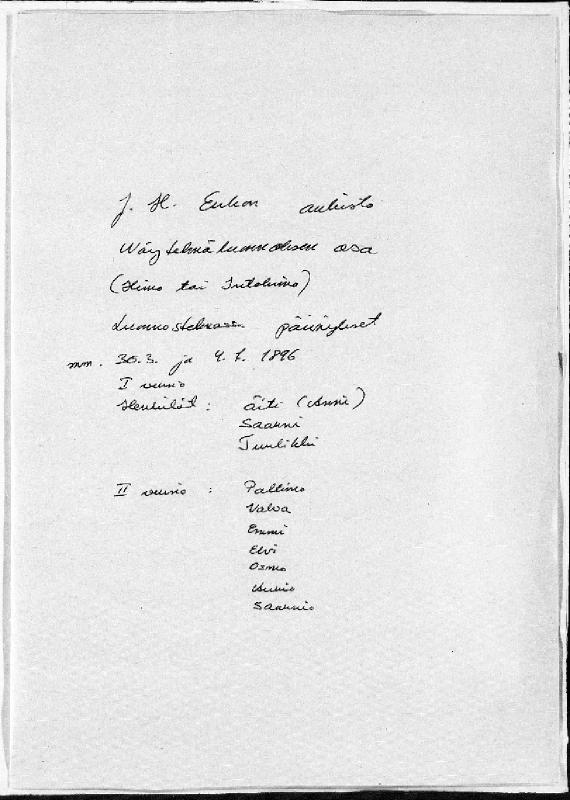 J. H. Erkon arkisto
Näytelmäluonnoksen osa
(Himo tai Intohimo)
Luonnostelmassa päiväykset
mm. 30.3. ja 4.7. 1896
I versio
Henkilöt: Äiti (Anni)
Saarni
Tuulikki
II versio : Paltimo
Valva
Emmi
Elvi
Osmo
Saarnio